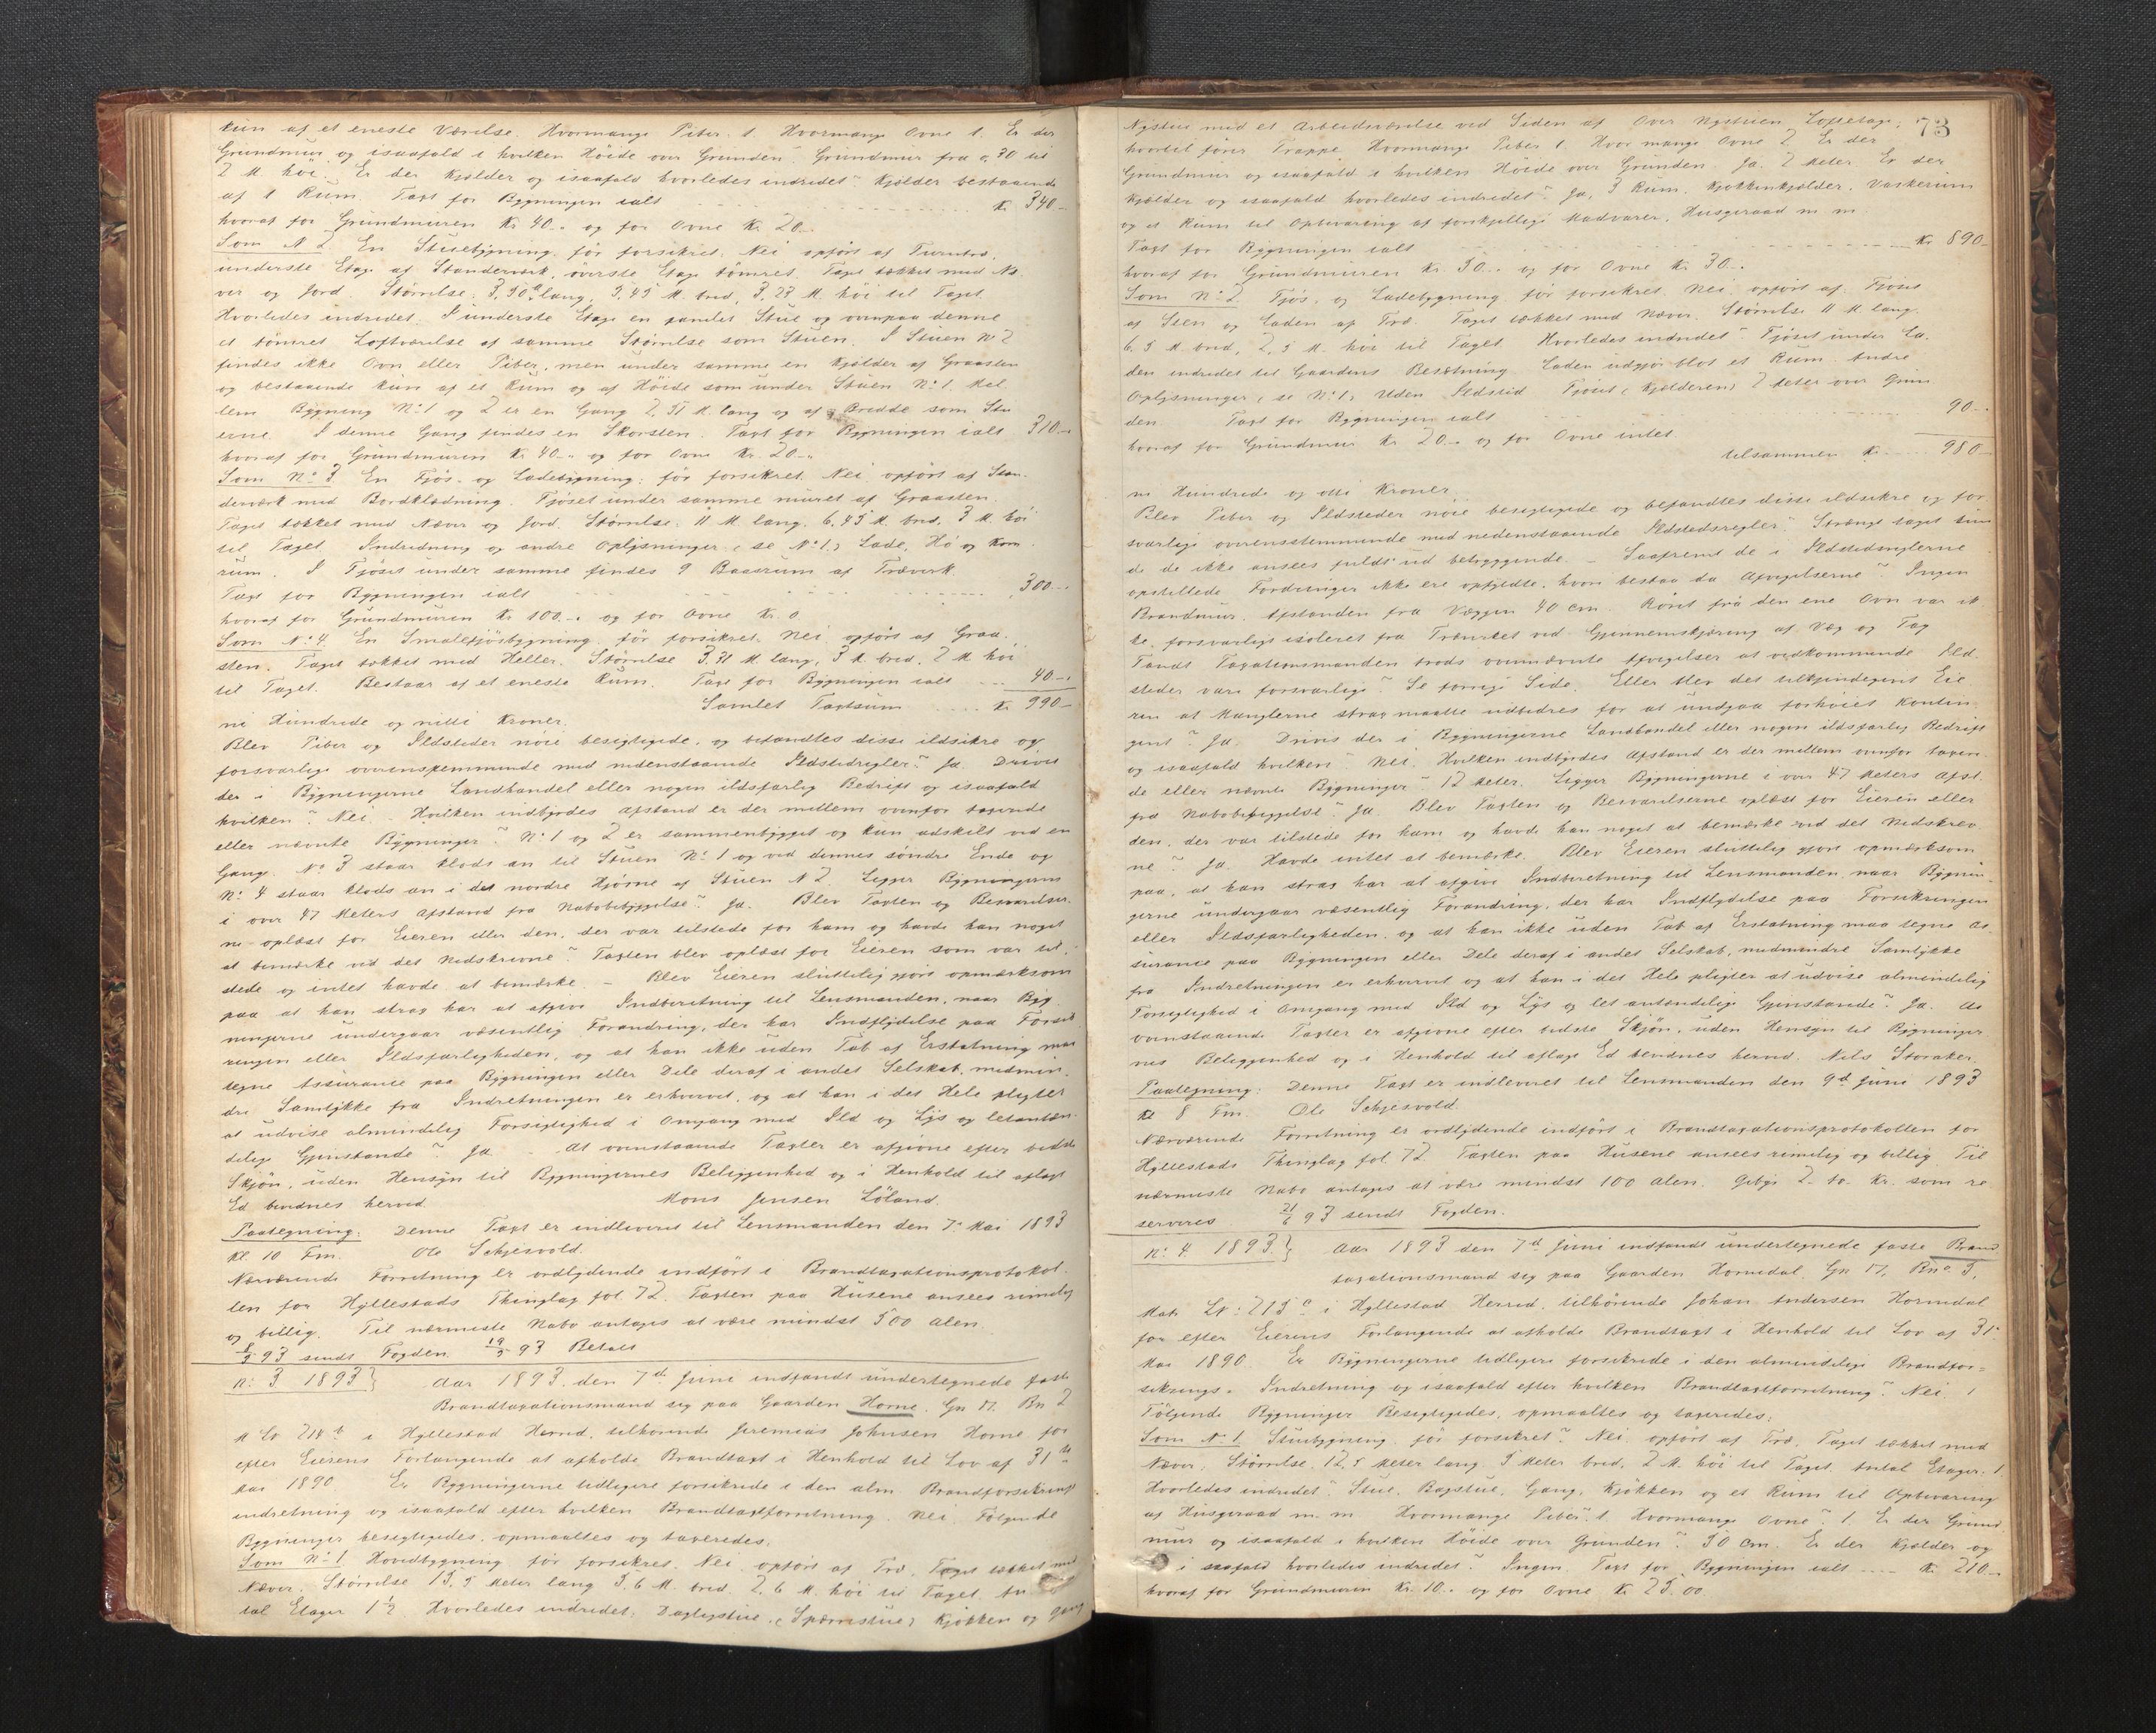 kun af et eneste Værelse. Hvormange Piber. 1. Hvormange Ovne 1. Er der
Grundmur og isaafald i hvilken Höide over Grunden. Grundmur fra 0,30 til
2 M. höi. Er der Kjelder og isaafald hvorledes indredet? Kjelder bestaaende
af 1 Rum. Taxt for Bygningen ialt Kr. 340-
hvoraf for Grundmuren Kr 40.. og for Ovne Kr. 20..
Som N 2 En Stuebygning. för forsikret. Nei opfört af
underste Etage af Standerværk, överste Etage tömret. Taget tækket med Næ-
ver og Jord. Störrelse: 3,30 lang, 3,45 M. bred, 3.23 M. höi til Taget.
Hvorledes indredet. I underste Etage en Stue og ovenpaa denne
et tömret Loftværelse af samme Störrelse som Stuen. I Stuen No 2
findes ikke Ovn eller Piber, men under samme en Kjelder af Graasten
og bestaaende kun af et Rum og af Höide som under Stuen No 1. Mel-
lem Bygning No 1 og 2 er en Gang 2,31 M. lang og af Bredde som Stu
erne. I denne Gang findes en Skorsten. Taxt for Bygningen ialt 310-.
hvoraf for Grundmuren Kr 40.. og for Ovne Kr. 20..
Som No 3 En Fjös- og Ladebygning: för forsikret. Nei opfört af Stan-
derværk med Bordklædning. Fjöset under samme muret af Graasten.
Taget tækket med Næver og Jord. Störrelse: 11 M. lang, 6,45 M. bred, 3 M. höi
til Taget. Indredning og andre Oplysninger (se No 1.) Lade, Hö og Korn
rum. I Fjöset under samme findes 9 Baasrum af Træverk.
Taxt for Bygningen ialt 300-.
hvoraf for Grundmuren Kr 100.. og for Ovne Kr. 0
Som No 4. En Smalefjösbygning. för forsikret. Nei opfört af Graa-
sten. Taget tækket med Heller. Störrelse 3.31 M. lang, 3 M. bred, 2 M höi
til Taget. Bestaar af et eneste Rum. Taxt for Bygningen ialt 40-.
Samlet Taxtsum Kr. 990-
ni Hundrede og nitti Kroner.
Blev Piber og Ildsteder nöie besigtigede, og befandtes disse ildsikre og
forsvarlige overensstemmende med nedenstaaende Ildstedregler? Ja. Drives
der i Bygningerne Landhandel eller nogen ildsfarlig Bedrift og isaafald
hvilken? Nei. Hvilken indbyrdes Afstand er der mellem ovenfor taxerede
eller nævnte Bygninger? No 1 og 2 er sammenbygget og kun adskilt ved en
Gang. No 3 staar klods an til Stuen No 1 og ved dennes söndre Ende og
No 4 staar klods an i det nordre Hjörne af Stuen N 2. Ligger Bygningerne
i over 47 Meters Afstand fra Nabobebyggelse? Ja. Blev Taxten og Besvarelser-
ne oplæst for Eieren eller den, der var tilstede for ham og havde han noget
at bemærke ved det Nedskrevne? Taxten blev oplæst for Eieren som var til-
stede og intet havde at bemærke. - Blev Eieren sluttelig gjort opmærksom
paa at han strax har at afgive Indberetning til Lensmanden, naar Byg-
ningerne undergaar væsentlig Forandring, der har Indflydelse paa Forsik-
ringen eller Ildsfarligheden, og at han ikke uden Tab af Erstatning maa
tegne Assurance paa Bygningen eller Dele deraf i andet Selskab, medmin-
dre Samtykke fra Indretningen er erhvervet, og at han i det Hele pligter
at udvise almindelig Forsigtighed i Omgang med Ild og Lys og letantæn-
delige Gjenstande? Ja. At ovenstaaende Taxter er afgivne efter bedste
Skjön, uden Hensyn til Bygningernes Beliggenhed og i Henhold til aflagt
Ed bevidnes herved. Mons Jensen Löland.
Paategning: Denne Taxt er indleveret til Lensmanden den 7. Mai 1893
Kl. 10 Fm. Ole Schjesvold.
Nærværende Forretning er ordlydende indfört i Brandtaxationsprotokol-
len for Hyllestads Thinglag fol. 72. Taxten paa Husene ansees rimelig
og billig. Til nærmeste Nabo antages at være mindst 500 Alen.
8/5 93 sendt Fogden. 19/5 93 Betalt
No 3 1893} Aar 1893. den 7de Juni indfandt undertegnede faste
Brandtaxationsmand sig paa Gaarden Horne. Gn 17. Bn 2
M Lv 214b i Hyllestad Herred, tilhörende Jeremias Johnsen Horne for
efter Eierens Forlangende at afholde Brandtaxt i Henhold til Lov af 31te
Mai 1890. Er Bygningerne tidligere forsikrede i den alm. Brandforsikrings
indretning og isaafald efter hvilken Brandtaxtforretning. Nei. Fölgende
Bygninger besigtigedes, opmaaltes og taxeredes:
Som No 1. Hovedbygning för forsikret. Nei opfört af Træ. Taget tækket med
Næver. Störrelse 13,5 Meter lang 5,6 M. bred. 2,6 M. höi til Taget. An
tal Etager 1½ Hvorledes indredet: Daglystue (Spærrestue) Kjökken og Gang
73
Nystue med et Arbeidsværelse ved Siden af. Over Nystuen Loftetage,
hvortil förer Trappe. Hvormange Piber 1. Hvor mange Ovne 2 Er der
Grundmur og isaafald i hvilken Höide over Grunden. Ja. 2 Meter. Er der
Kjelder og isaafald hvorledes indredet? Ja, 3 Rum. Kjökkenkjelder, Vaskerum
og et Rum til Opbevaring af forskjellige Madvarer, Husgeraad m m
Taxt for Bygningen ialt Kr. 890-
hvoraf for Grundmuren Kr. 50.. og for Ovne Kr 30-.
Som No 2 Fjös- og Ladebygning för forsikret. Nei. opfört af. Fjöset
af Sten og Laden af Træ. Taget tækket med Næver. Störrelse 11 M. lang.
6.5 M. bred, 2,5 M. höi til Taget. Hvorledes indredet? Fjöset under La-
den indredet til Gaardens Besætning. Laden udgjör blot et Rum. Andre
Oplysninger (se No 1) Uden Ildsted Fjöset (Kjelderen) 2 Meter over Grun
den. Taxt for Bygningen ialt 90-.
hvoraf for Grundmur Kr 20.. og for Ovne intet
tilsammen Kr. 980-
ni Hundrede og otti Kroner.
Blev Piber og Ildsteder nöie besigtigede og befandtes disse ildsikre og for-
svarlige overensstemmende med nedenstaaende Ildstedsregler? Strængt taget kun
de de ikke ansees fuldt ud betryggende. - Saafremt de i Ildstedsreglerne
opstillede Fordringer ikke ere opfyldte, hvori bestaa da Afvigelserne? Ingen
Brandmur. Afstanden fra Væggen 40 cm. Röret fra den ene Ovn var ik
ke forsvarlig isoleret fra Træverket ved Gjennemskjæring af Væg og Tag
Fandt Taxationsmanden trods ovennævnte Afvigelser at vedkommende Ild-
steder vare forsvarlige? Se forrige Side. Eller blev det tilkjendegivet Eie-
ren at Manglerne strax maatte udbedres for at undgaa forhöiet Kontin-
gent? Ja. Drives der i Bygningerne Landhandel eller nogen ildsfarlig Bedrift
og isaafald hvilken? Nei. Hvilken indbyrdes Afstand er der mellem ovenfor taxere
de eller nævnte Bygninger? 12 Meter. Ligger Bygningerne i over 47 Meters Afst.
fra Nabobebyggelse? Ja. Blev Taxten og Besvarelserne oplæst for Eieren eller
den, der var tilstede for ham og havde han noget at bemærke ved det Nedskrev-
ne? Ja. Havde intet at bemærke. Blev Eieren sluttelig gjort opmærksom
paa, at han strax har at afgive Indberetning til Lensmanden, naar Bygnin-
gerne undergaar væsentlig Forandring, der har Indflydelse paa Forsikringen
eller Ildsfarligheden, og at han ikke uden Tab af Erstatning maa tegne As-
surance paa Bygningen eller Dele deraf i andet Selskab, medmindre Samtykke
fra Indretningen er erhvervet og at han i det Hele pligter at udvise almindelig
Forsigtighed i Omgang med Ild og Lys og let antændelige Gjenstande? Ja. At
ovenstaaende Taxter er afgivne efter bedste Skjön, uden Hensyn til Bygninger
nes Beliggenhed og i Henhold til aflagt Ed bevidnes herved. Nils Storaker.
Paategning: Denne Taxt er indleveret til Lensmanden den 9de Juni 1893
Kl 8 Fm. Ole Schjesvold.
Nærværende Forretning er ordlydende indfört i Brandtaxationsprotokollen for
Hyllestads Thinglag fol. 72. Taxten paa Husene ansees rimelig og billig. Til
nærmeste Nabo antages at være mindst 100 Alen. Gebyr 2- to- Kr. som re
serveres. 21/6 93 sendt Fogden.
No 4. 1893} Aar 1893 den 7de Juni indfandt undertegnede faste Brand
taxationsmand sig paa Gaarden Hornedal. Gn 17. Bno 3,
Matr Lv: 215c i Hyllestad Herred, tilhörende Johan Andersen Hornedal
for efter Eierens Forlangende at afholde Brandtaxt i Henhold til Lov af 31te
Mai 1890. Er Bygningerne tidligere forsikrede i den almindelige Brandfor-
sikrings- Indretning og isaafald efter hvilken Brandtaxtforretning? Nei.
Fölgende Bygninger Besigtigedes, opmaaltes og taxeredes:
Som N 1. Stuebygning. för forsikret? Nei. opfört af Træ. Taget tækket med
Næver. Störrelse. 12,5 Meter lang 5 Meter bred. 2 M. höi til Taget. Antal Etager. 1.
Hvorledes indredet? Stue. Bagstue, Gang, Kjökken og et Rum til Opbevaring
af Husgeraad m. m Hvormange Piber? 1 Hvormange Ovne? 1. Er der Grund
mur og isaafald i hvilken Höide over Grunden? 50 cm. Er der Kjelder og
i saafald hvorledes indredet? Ingen. Taxt for Bygningen ialt Kr. 210-.
hvoraf for Grundmuren Kr. 10.. og for Ovne Kr 25.00.